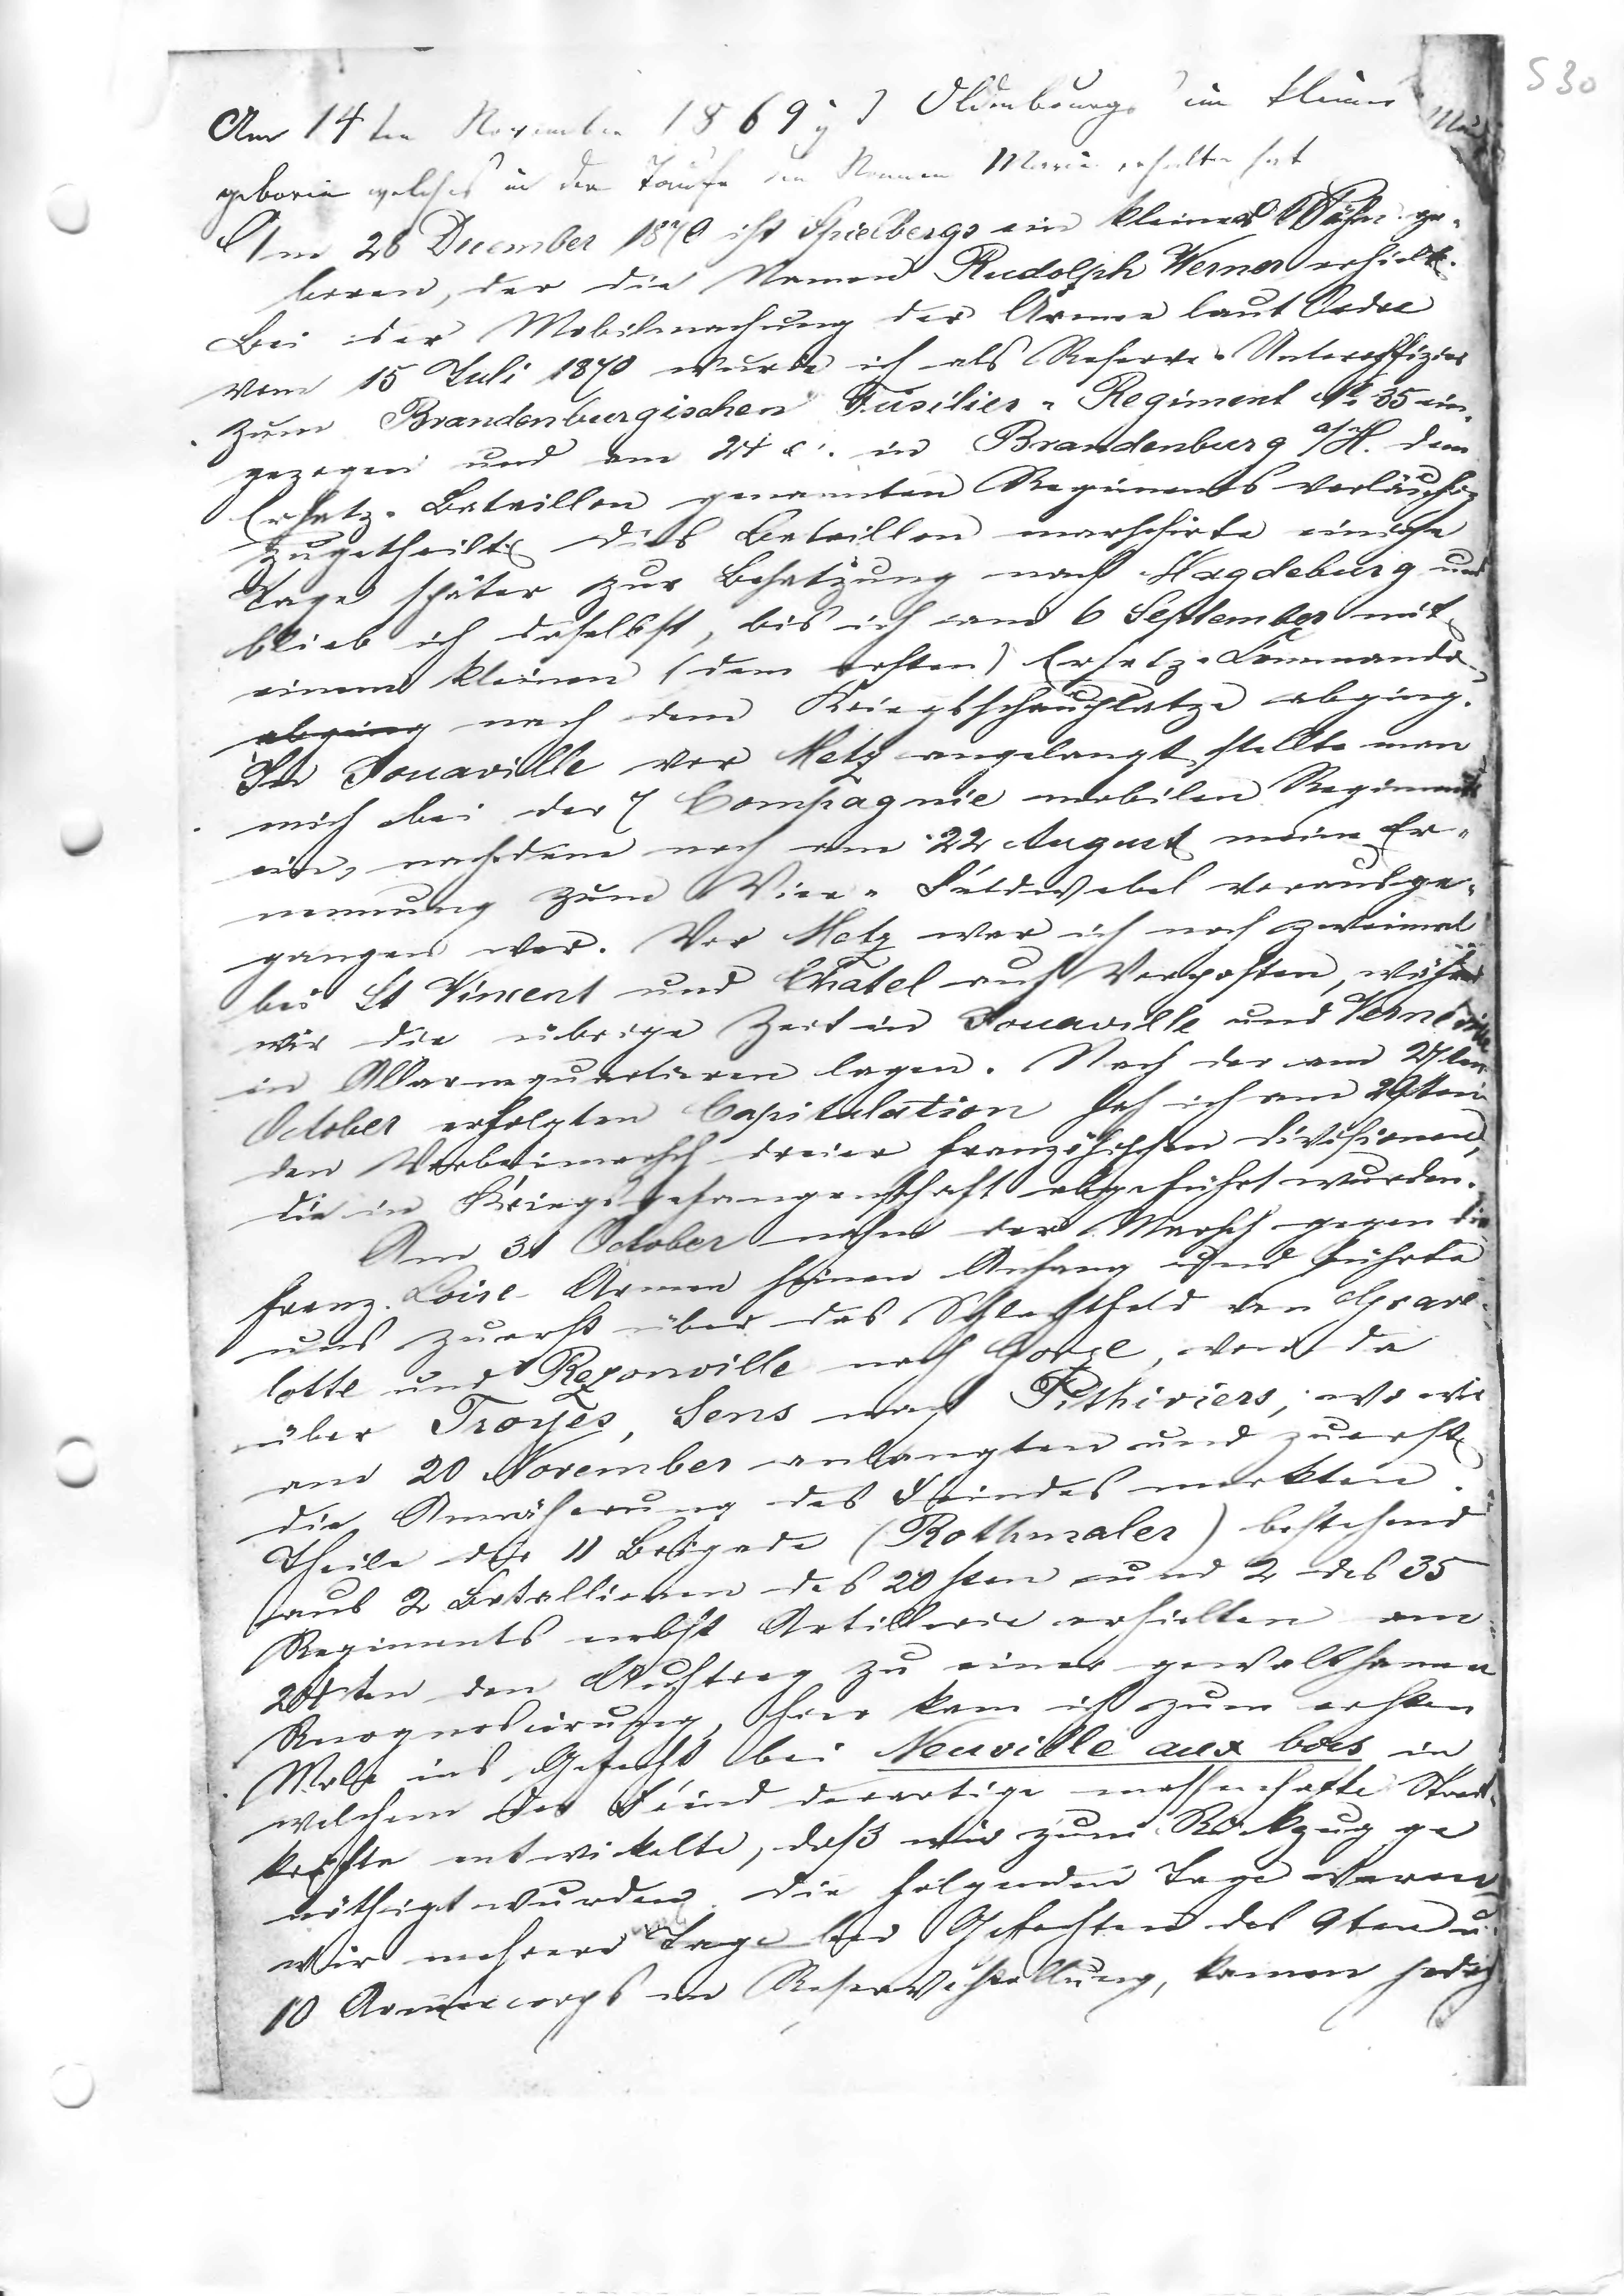 S 30
Am 14ten November 1869 Oldenbourgs ein kleines Mäd
geboren welches in der Taufe den Namen Marie erhalten hat
Am 28 December 1870 ist Spielbergs ein kleiner Sohn ge-
boren, der die Namen Rudolph Werner erhielt.
Bei der Mobilmachung der Armee laut Ordre
vom 15 Juli 1870 wurde ich als Reserve-Unteroffizier
zum Brandenburgischen Füsilier-Regiment No 35 ein-
gezogen und am 24 c. in Brandenburg a/H. dem
Ersatz-Bataillon genannten Regiments vorläufig
zugetheilt. Dies Bataillon marschirte einige
Tage später zur Besatzung nach Magdeburg und
blieb ich daselbst, bis ich am 6 September mit
einem kleinen (dem ersten) Ersatz-Commando
abging nach dem Kriegsschauplatze abging.
In Jouaville vor Metz angelangt, stellte man
mich bei der 7 Compagnie mobilen Regiments
ein, nachdem noch am 22 August meine Er-
nennung zum Vice-Feldwebel vorausge-
gangen war. Vor Metz war ich noch zweimal
bei St Vincent und Chatel auf Vorposten, während
wir die übrige Zeit in Jouaville und Verneville
in Allarmquartieren lagen. Nach der am 27ten
October erfolgten Capitulation sah ich am 29ten
den Vorbeimarsch dreier französischen Divisionen,
die in Kriegsgefangenschaft abgeführt wurden.
Am 31 October nahm der Marsch gegen die
franz. Loire-Armee seinen Anfang und führte
uns zuerst über das Schlachtfeld von Grave-
lotte und Rezonville nach Gorze, von da
über Troyes, Sens nach Pithiviers, wo wir
am 20 November anlangten und zuerst
die Annäherung des Feindes merkten.
Theile der 11 Brigade (Rothmaler) bestehend
aus 2 Batallionen des 20sten und 2 des 35
Regiments nebst Artillerie erhielten am
24ten den Auftrag zu einer gewaltsamen
Recognoscirung, hier kam ich zum ersten
Male ins Gefecht bei Neuville aux bois in
welchem der Feind derartige massenhafte Streit-
kräfte entwikelte, daß wir zum Rückzug ge
nöthigt wurden. Die folgenden Tage waren
wir mehrere Tage bei Gefechten des 9ten u.
10 Armeecorps in Reservestellung, kamen jedoch